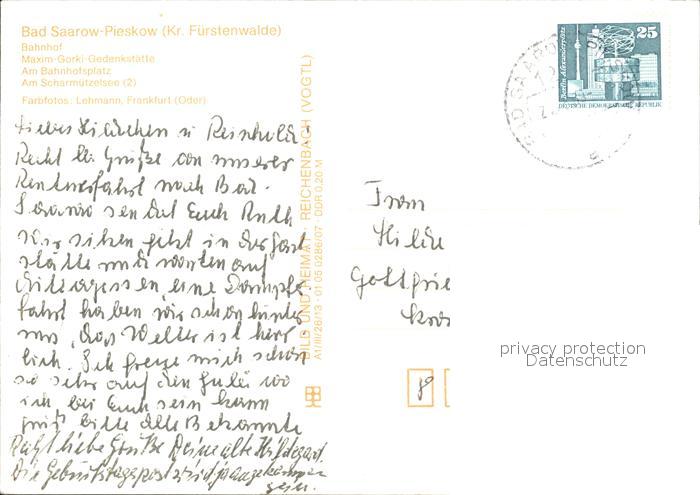 Bad Saarow-Pieskow (Kr. Fürstenwalde)
Bahnhof
Maxim-Gorki-Gedenkstätte
Am Bahnhofsplatz
Am Scharmützelsee (2)
Farbfotos: Lehmann, Frankfurt (Oder)
Liebes Hildchen u Reinhold!
Recht lb. Grüße von unserer
Rentnerfahrt nach Bad-
Saarow sendet Euch Ruth
Wir sitzen jetzt in der Gast
stätte und warten auf
Mittagessen, eine Dampfer
fahrt haben wir schon hinter
uns, das Wetter ist herr
lich. Ich freue mich schon
so sehr auf den Juli wo
ich bei Euch sein kann
bitte alle Bekannte
Recht liebe Grüße Deine alte Hildegard.
Die Geburtstagspost wird ja angekommen
sein.
BILD UND HEIMAT · REICHENBACH (VOGTL)
A1/III/26/13 · 01 05 0286/07 · DDR 0,20 M
Berlin, Alexanderplatz
25
DEUTSCHE DEMOKRATISCHE REPUBLIK
BAD SAAROW
Frau
Hilde
Gottfrie
privacy protection
Datenschutz